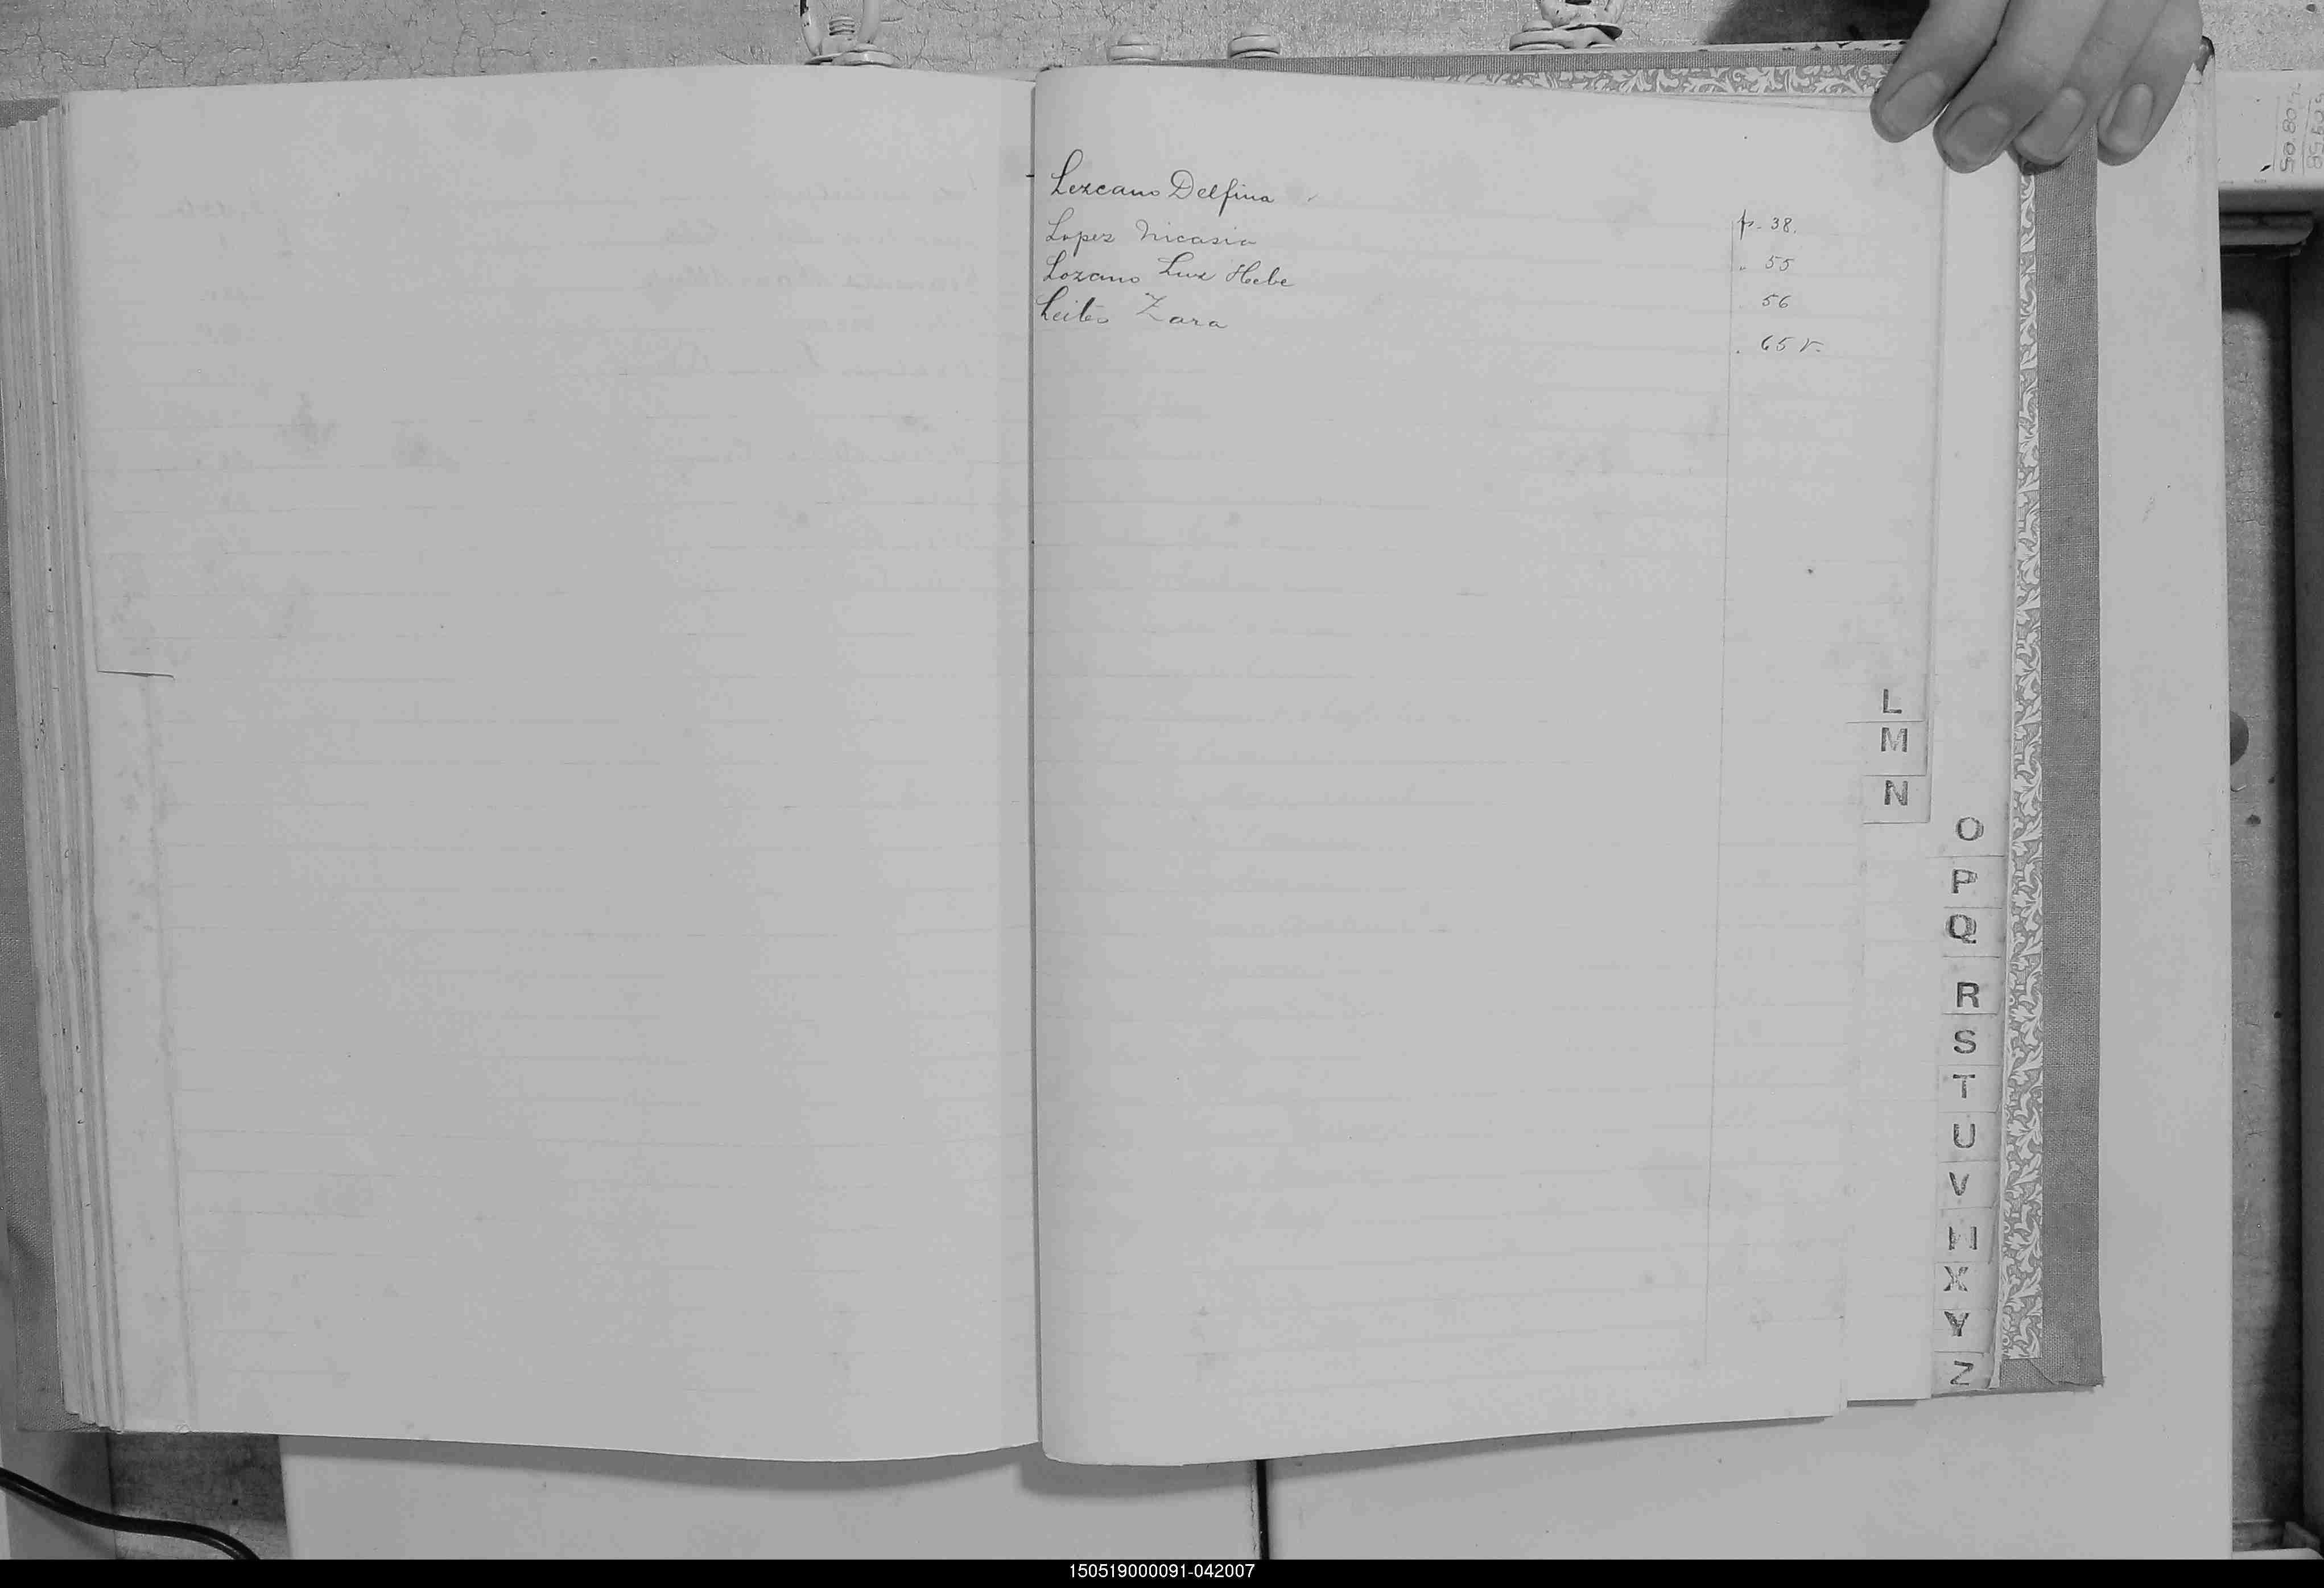 Lezcano Delfina p. 38.
Lopez Nicasia " 55
Lozano Luz Hebe " 56
Leites Zara " 65 v.
L
M
N
O
P
Q
R
S
T
U
V
W
X
Y
Z
150519000091-042007